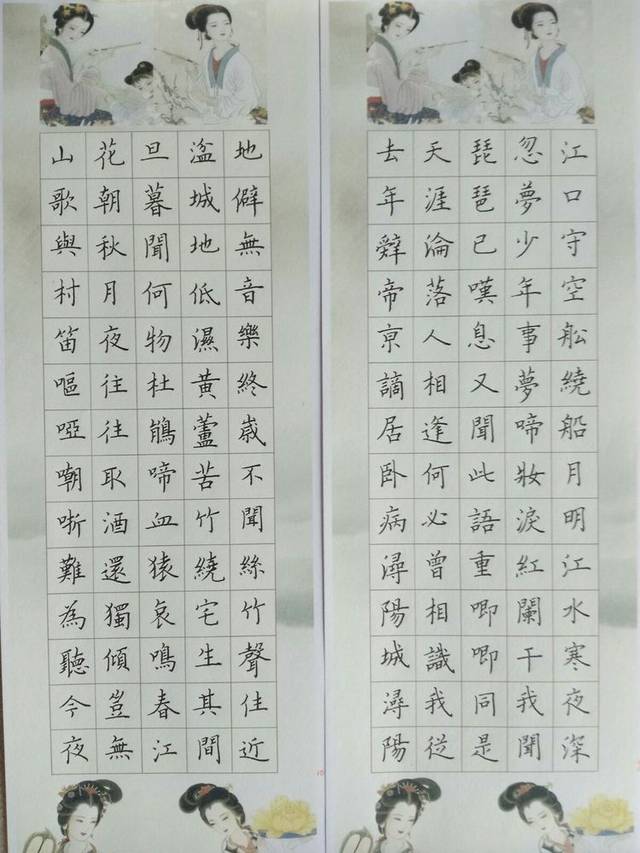 江口守空舩繞船月明江水寒夜深
忽夢少年事夢啼妝淚紅闌干我聞
琵琶已嘆息又聞此語重唧唧同是
天涯淪落人相逢何必曾相識我從
去年辭帝亰謫居卧病潯陽城潯陽
地僻無音樂終歲不聞絲竹聲住近
湓城地低濕黃蘆苦竹繞宅生其間
旦暮聞何物杜鵑啼血猿哀鳴春江
花朝秋月夜往往取酒還獨傾豈無
山歌與村笛嘔啞嘲哳難為聽今夜